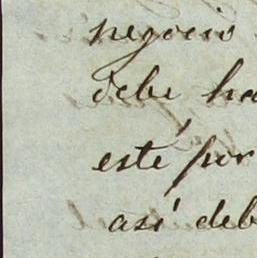 negocio
debe ha
esté por
así deb